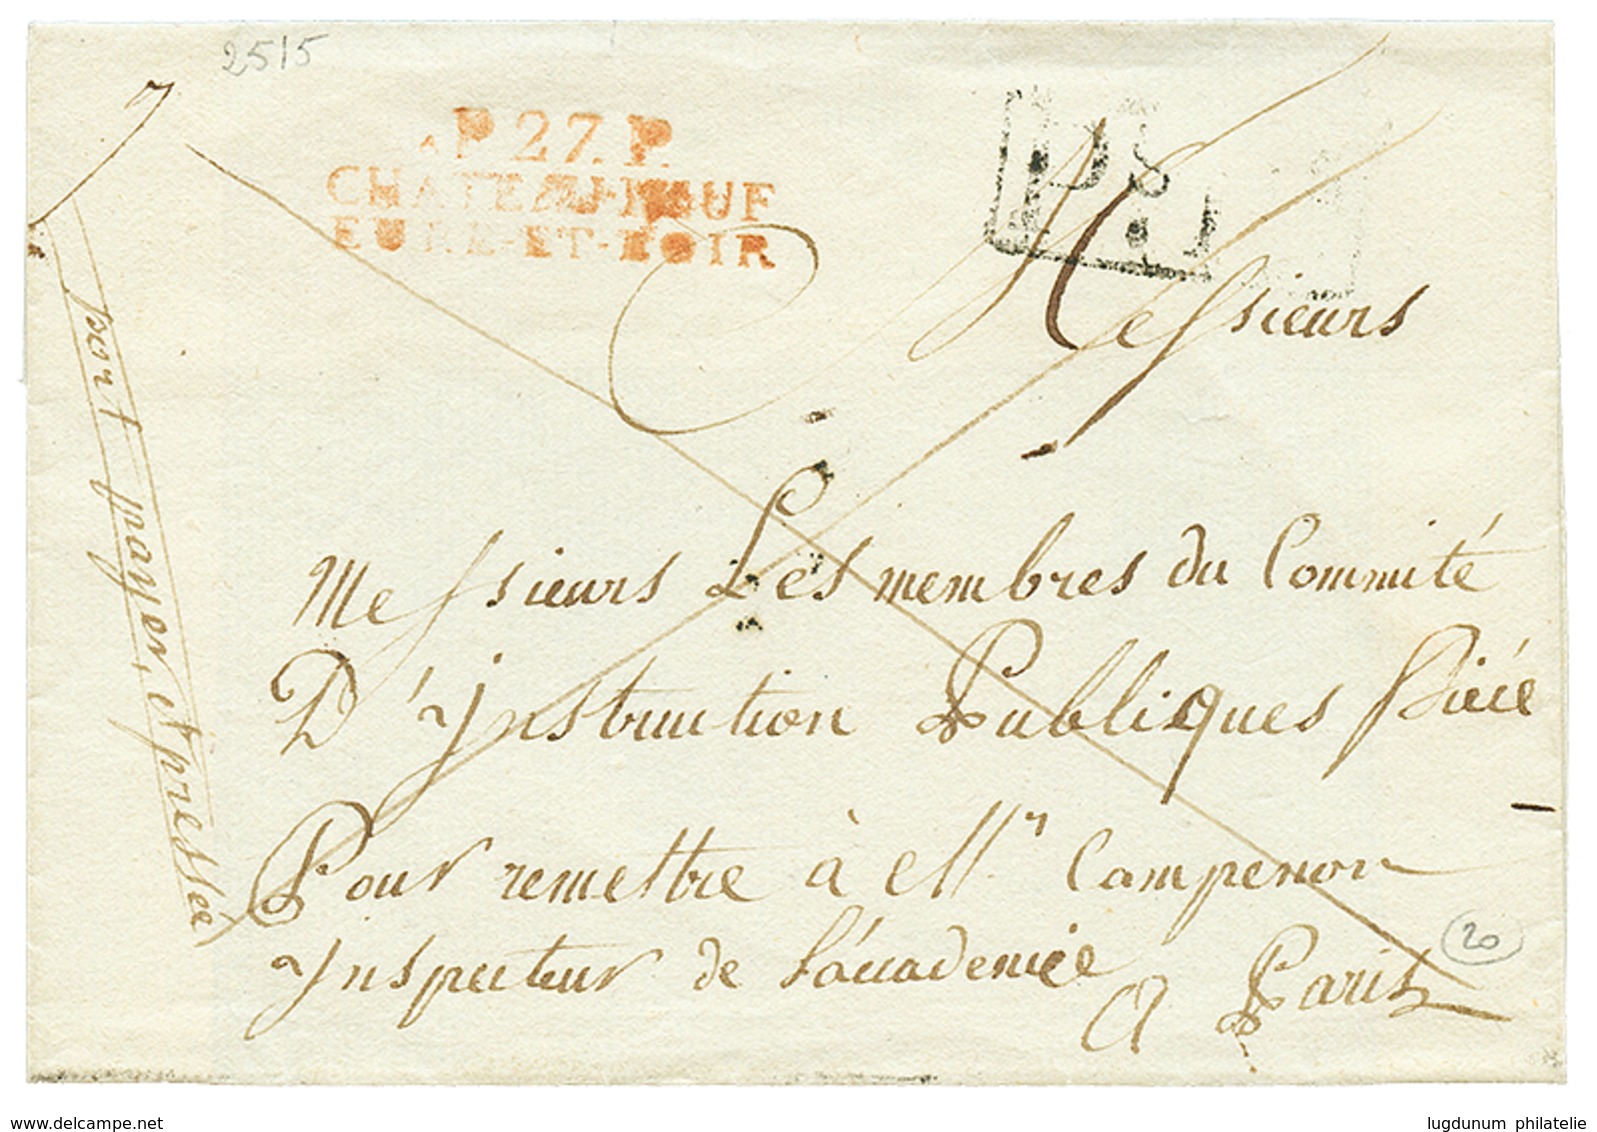 2515
P.27.P.
CHATEAU-NEUF
EURE-ET-LOIR
P.P.
Messieurs
Messieurs Les membres du Committé
D'Instruction Publiques
Pour remettre à Mr. Campenon
Inspecteur de L'accademiee
A Paris
port payer, et pressée
20
www.delcampe.net
lugdunum philatelie